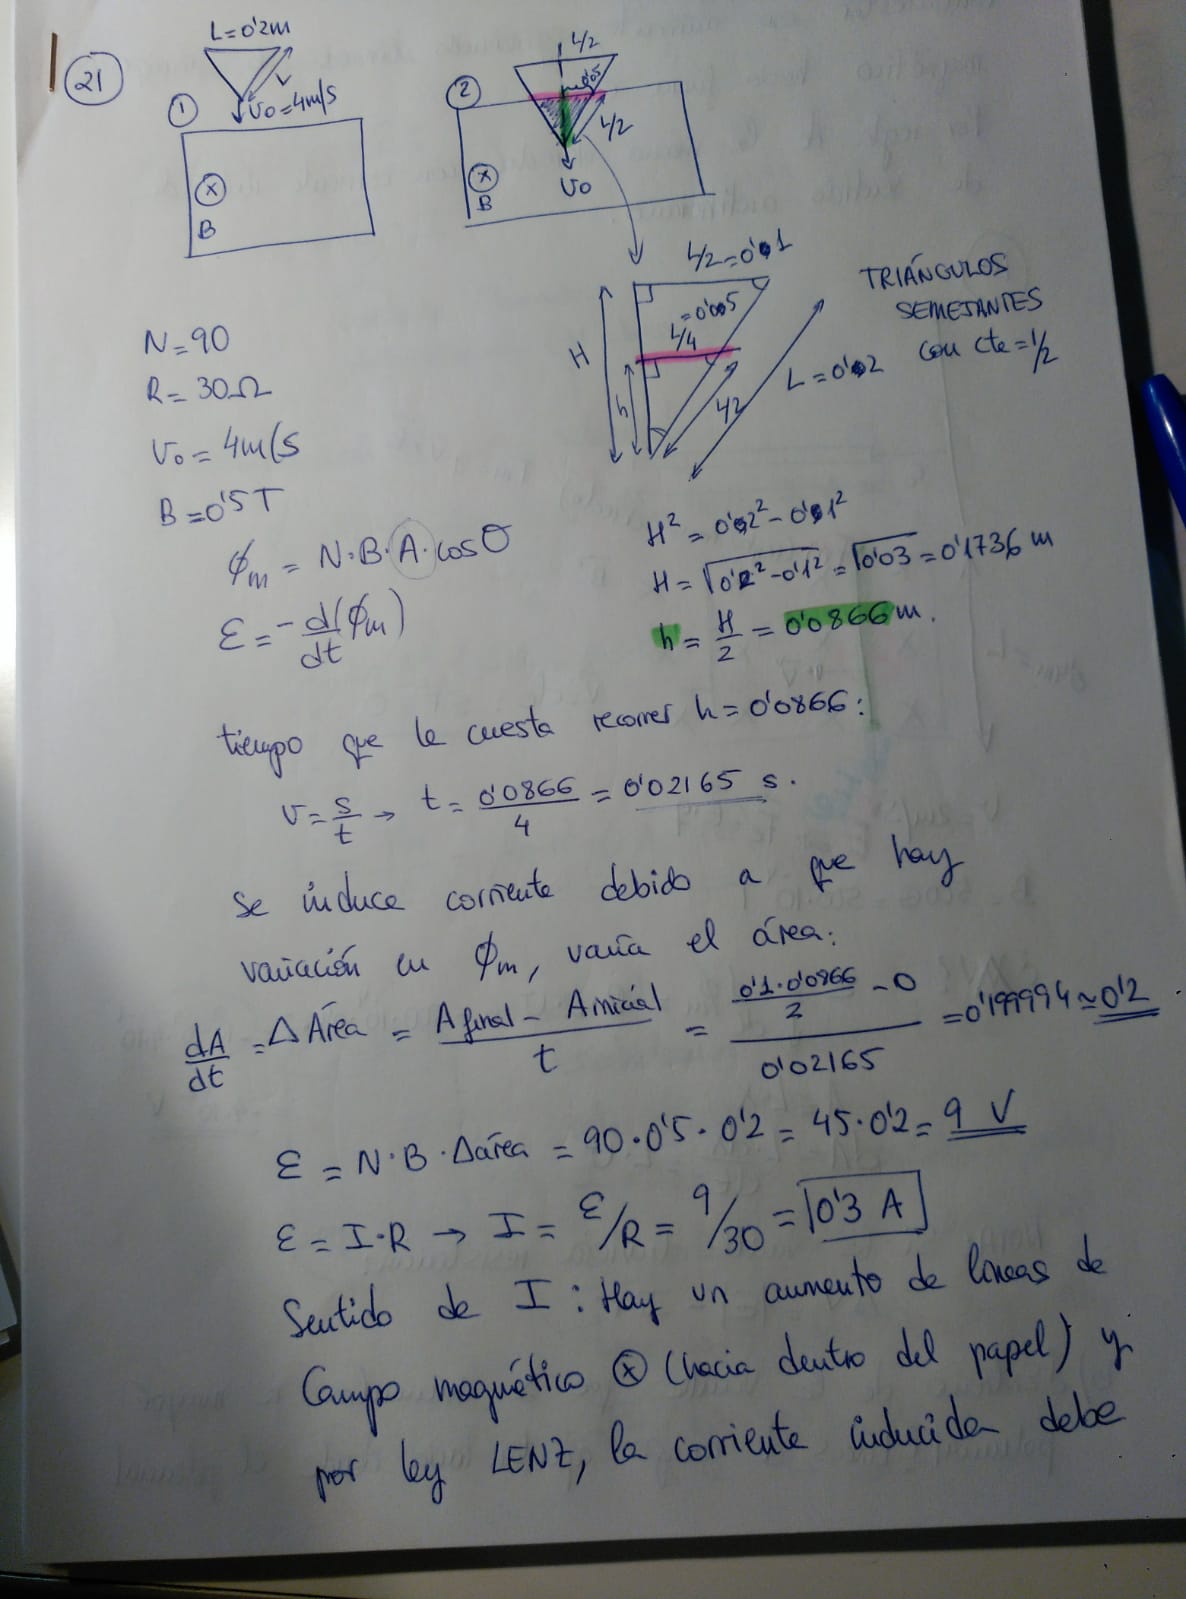 21
L=0'2m
L
1
V₀=4m/S
X
B
2
L/2
0'05
L/2
X
B
V₀
L/2=0'1
=0'05
L/4
H
h
L/2
L=0'2
TRIÁNGULOS
SEMEJANTES
con cte=1/2
N=90
R=30Ω
V₀=4m/S
B=0'5T
ϕm = N·B·A·cosΘ
ε=-d/dt(ϕm)
H²=0'2²-0'1²
H=√0'2²-0'1²=√0'03=0'1736 m
h=H/2=0'0866 m.
tiempo que le cuesta recorrer h=0'0866:
V=s/t → t=0'0866/4=0'02165 s.
se induce corriente debido a que hay
variación en ϕm, varía el área:
dA/dt=ΔÁrea=A final - A inicial/t=(0'1·0'0866/2 - 0)/0'02165=0'199994≈0'2
ε=N·B·Δárea=90·0'5·0'2=45·0'2=9 V
ε=I·R → I=ε/R=9/30=0'3 A
Sentido de I: Hay un aumento de líneas de
Campo magnético ⊗ (hacia dentro del papel) y
por ley LENZ, la corriente inducida debe